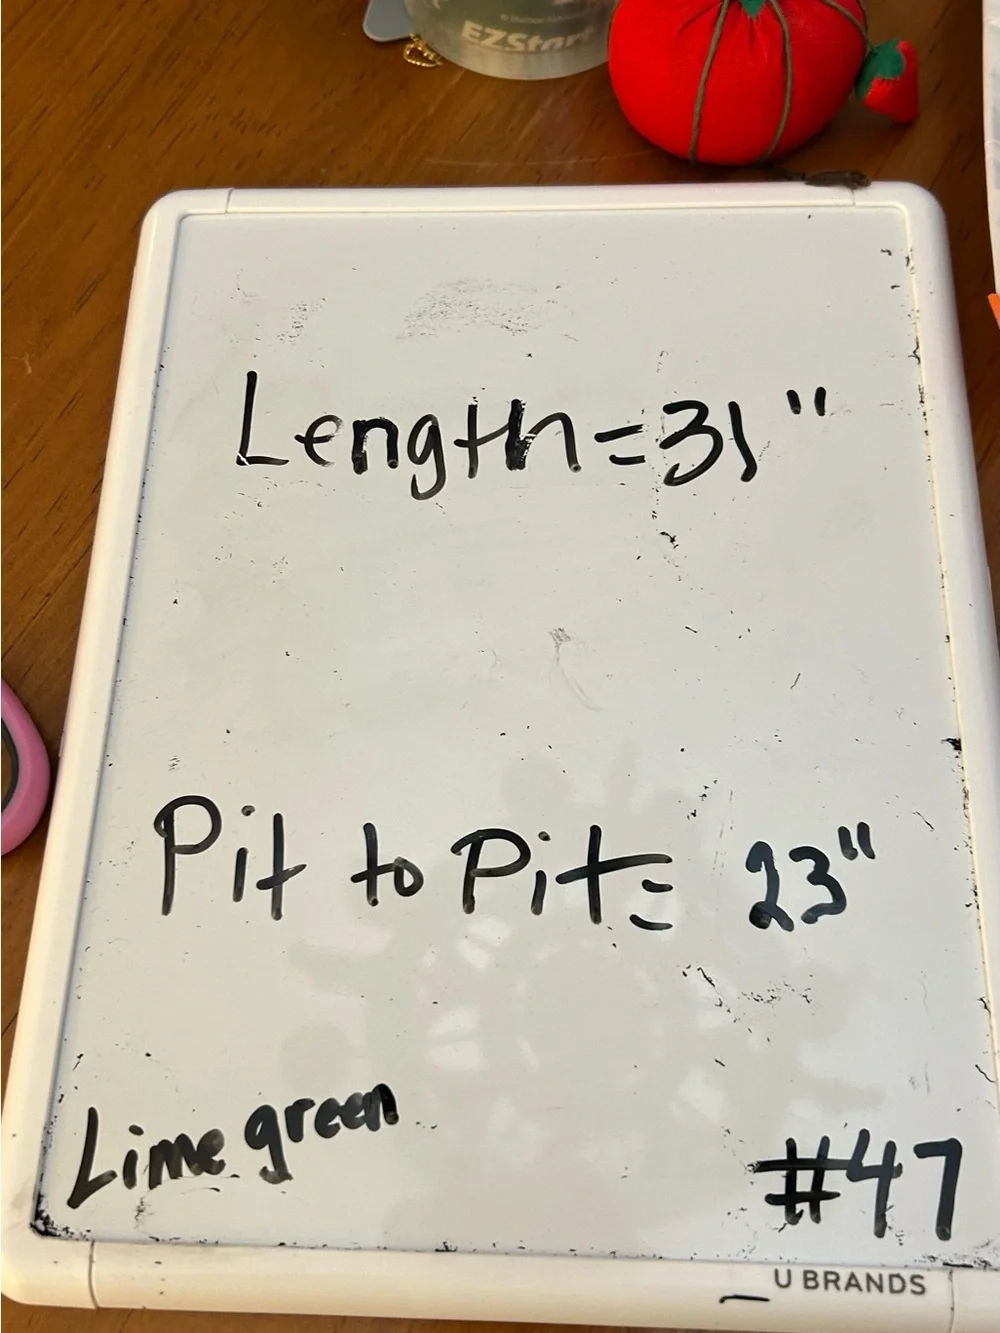 EZStart
Length = 31"
Pit to Pit = 23"
Lime green
#47
U BRANDS